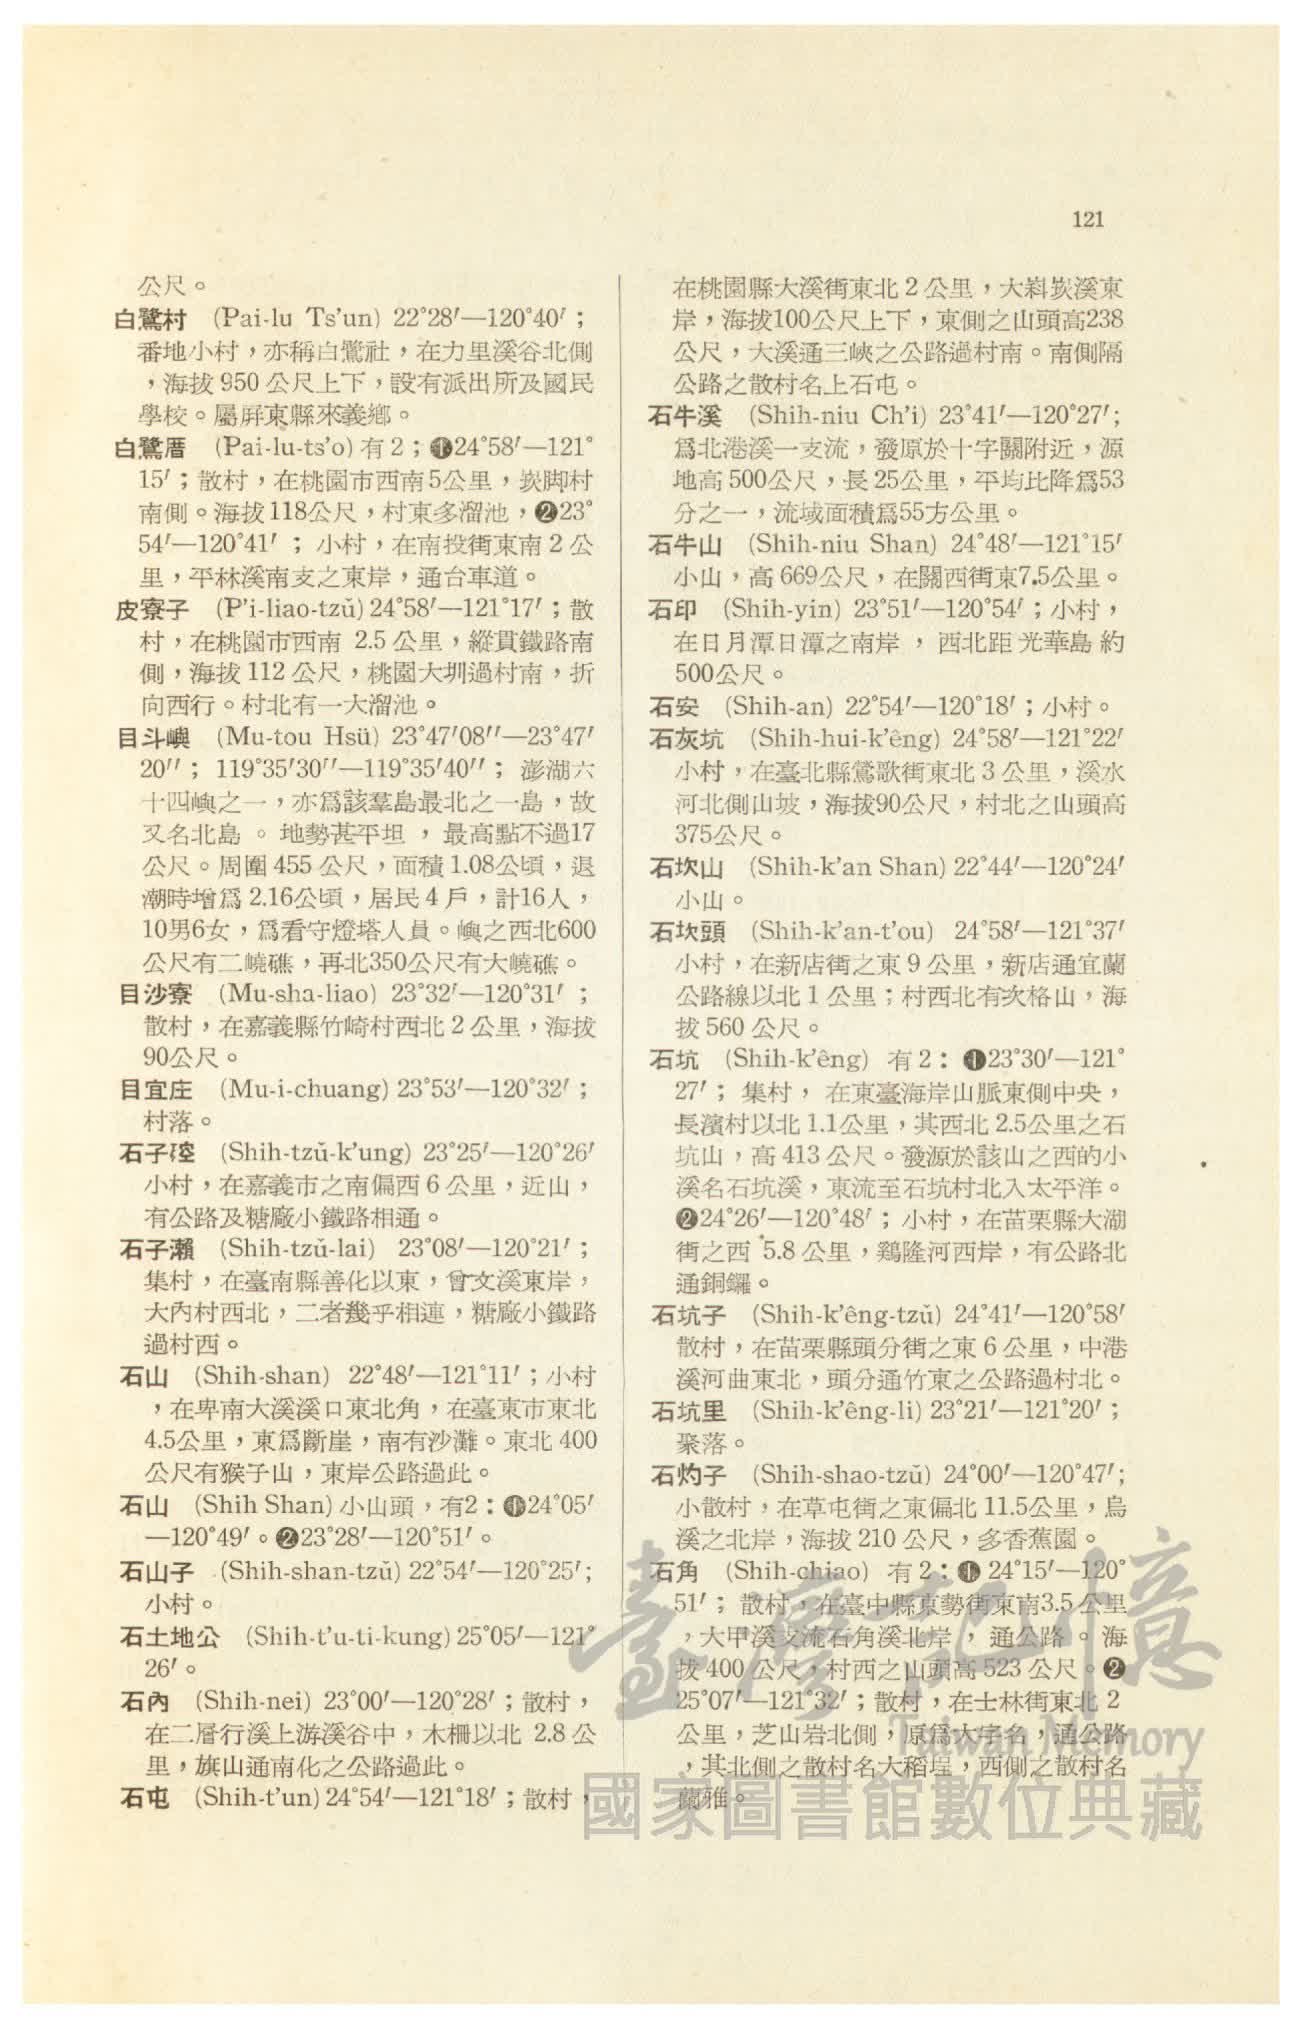 121
公尺。
白鷺村 (Pai-lu Ts'un) 22°28′—120°40′；
番地小村，亦稱白鷺社，在力里溪谷北側
，海拔 950 公尺上下，設有派出所及國民
學校。屬屏東縣來義鄉。
白鷺厝 (Pai-lu-ts'o) 有 2；❶24°58′—121°
15′；散村，在桃園市西南 5公里，崁脚村
南側。海拔 118公尺，村東多溜池，❷23°
54′—120°41′；小村，在南投街東南 2 公
里，平林溪南支之東岸，通台車道。
皮寮子 (P'i-liao-tzŭ) 24°58′—121°17′；散
村，在桃園市西南 2.5 公里，縱貫鐵路南
側，海拔 112 公尺，桃園大圳過村南，折
向西行。村北有一大溜池。
目斗嶼 (Mu-tou Hsü) 23°47′08′′—23°47′
20′′；119°35′30′′—119°35′40′′；澎湖六
十四嶼之一，亦爲該羣島最北之一島，故
又名北島。地勢甚平坦，最高點不過17
公尺。周圍 455 公尺，面積 1.08公頃，退
潮時增爲 2.16公頃，居民 4 戶，計16人，
10男6女，爲看守燈塔人員。嶼之西北600
公尺有二嶢礁，再北350公尺有大嶢礁。
目沙寮 (Mu-sha-liao) 23°32′—120°31′；
散村，在嘉義縣竹崎村西北 2 公里，海拔
90公尺。
目宜庄 (Mu-i-chuang) 23°53′—120°32′；
村落。
石子硿 (Shih-tzŭ-k'ung) 23°25′—120°26′
小村，在嘉義市之南偏西 6 公里，近山，
有公路及糖廠小鐵路相通。
石子瀨 (Shih-tzŭ-lai) 23°08′—120°21′；
集村，在臺南縣善化以東，曾文溪東岸，
大內村西北，二者幾乎相連，糖廠小鐵路
過村西。
石山 (Shih-shan) 22°48′—121°11′；小村
，在卑南大溪溪口東北角，在臺東市東北
4.5公里，東爲斷崖，南有沙灘。東北 400
公尺有猴子山，東岸公路過此。
石山 (Shih Shan) 小山頭，有2：❶24°05′
—120°49′。❷23°28′—120°51′。
石山子 (Shih-shan-tzŭ) 22°54′—120°25′；
小村。
石土地公 (Shih-t'u-ti-kung) 25°05′—121°
26′。
石內 (Shih-nei) 23°00′—120°28′；散村，
在二層行溪上游溪谷中，木柵以北 2.8 公
里，旗山通南化之公路過此。
石屯 (Shih-t'un) 24°54′—121°18′；散村，
在桃園縣大溪街東北 2 公里，大嵙崁溪東
岸，海拔100公尺上下，東側之山頭高238
公尺，大溪通三峽之公路過村南。南側隔
公路之散村名上石屯。
石牛溪 (Shih-niu Ch'i) 23°41′—120°27′；
爲北港溪一支流，發原於十字關附近，源
地高 500公尺，長 25公里，平均比降爲53
分之一，流域面積爲55方公里。
石牛山 (Shih-niu Shan) 24°48′—121°15′
小山，高 669公尺，在關西街東7.5公里。
石印 (Shih-yin) 23°51′—120°54′；小村，
在日月潭日潭之南岸，西北距光華島約
500公尺。
石安 (Shih-an) 22°54′—120°18′；小村。
石灰坑 (Shih-hui-k'êng) 24°58′—121°22′
小村，在臺北縣鶯歌街東北 3 公里，溪水
河北側山坡，海拔90公尺，村北之山頭高
375公尺。
石坎山 (Shih-k'an Shan) 22°44′—120°24′
小山。
石坎頭 (Shih-k'an-t'ou) 24°58′—121°37′
小村，在新店街之東 9 公里，新店通宜蘭
公路線以北 1 公里；村西北有次格山，海
拔 560 公尺。
石坑 (Shih-k'êng) 有 2：❶23°30′—121°
27′；集村，在東臺海岸山脈東側中央，
長濱村以北 1.1公里，其西北 2.5公里之石
坑山，高 413 公尺。發源於該山之西的小
溪名石坑溪，東流至石坑村北入太平洋。
❷24°26′—120°48′；小村，在苗栗縣大湖
街之西 5.8 公里，鷄隆河西岸，有公路北
通銅鑼。
石坑子 (Shih-k'êng-tzŭ) 24°41′—120°58′
散村，在苗栗縣頭分街之東 6 公里，中港
溪河曲東北，頭分通竹東之公路過村北。
石坑里 (Shih-k'êng-li) 23°21′—121°20′；
聚落。
石灼子 (Shih-shao-tzŭ) 24°00′—120°47′；
小散村，在草屯街之東偏北 11.5公里，烏
溪之北岸，海拔 210 公尺，多香蕉園。
石角 (Shih-chiao) 有 2：❶ 24°15′—120°
51′；散村，在臺中縣東勢街東南3.5公里
，大甲溪支流石角溪北岸，通公路。海
拔 400 公尺，村西之山頭高 523 公尺。❷
25°07′—121°32′；散村，在士林街東北 2
公里，芝山岩北側，原爲大字名，通公路
，其北側之散村名大稻埕，西側之散村名
蘭雅。
臺灣記憶
Taiwan Memory
國家圖書館數位典藏